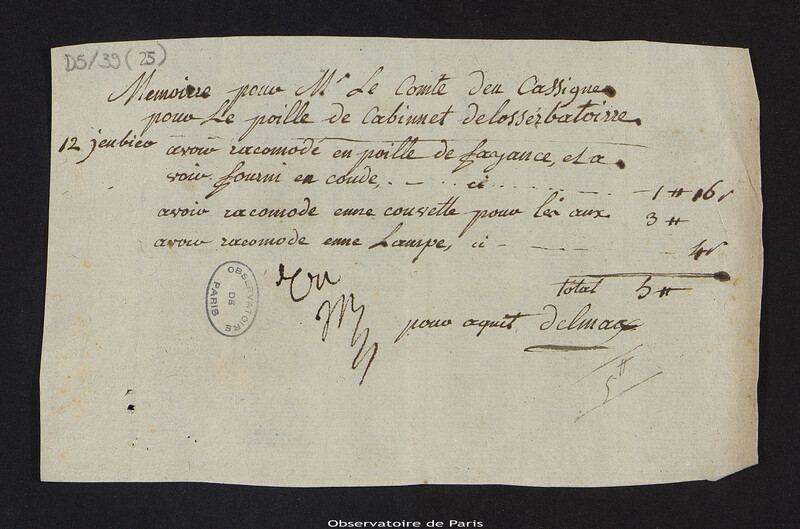 D5/39 (25)
Memoirre pour Mr Le Comte deu Cassigne
pour Le poille de Cabinnet delossérbatoirre
12 jenbieu avoir racomodé en poille de fayance, et a
voir fourni en coude, ci 1 ₶ 16 s
avoir racomodé enne couvette pour lés aux 3 ₶
avoir racomodé enne Lampe, ci 4 s
total 5 ₶
pour aquit delmas
5 ₶
OBSERVATOIRE DE PARIS
Observatoire de Paris